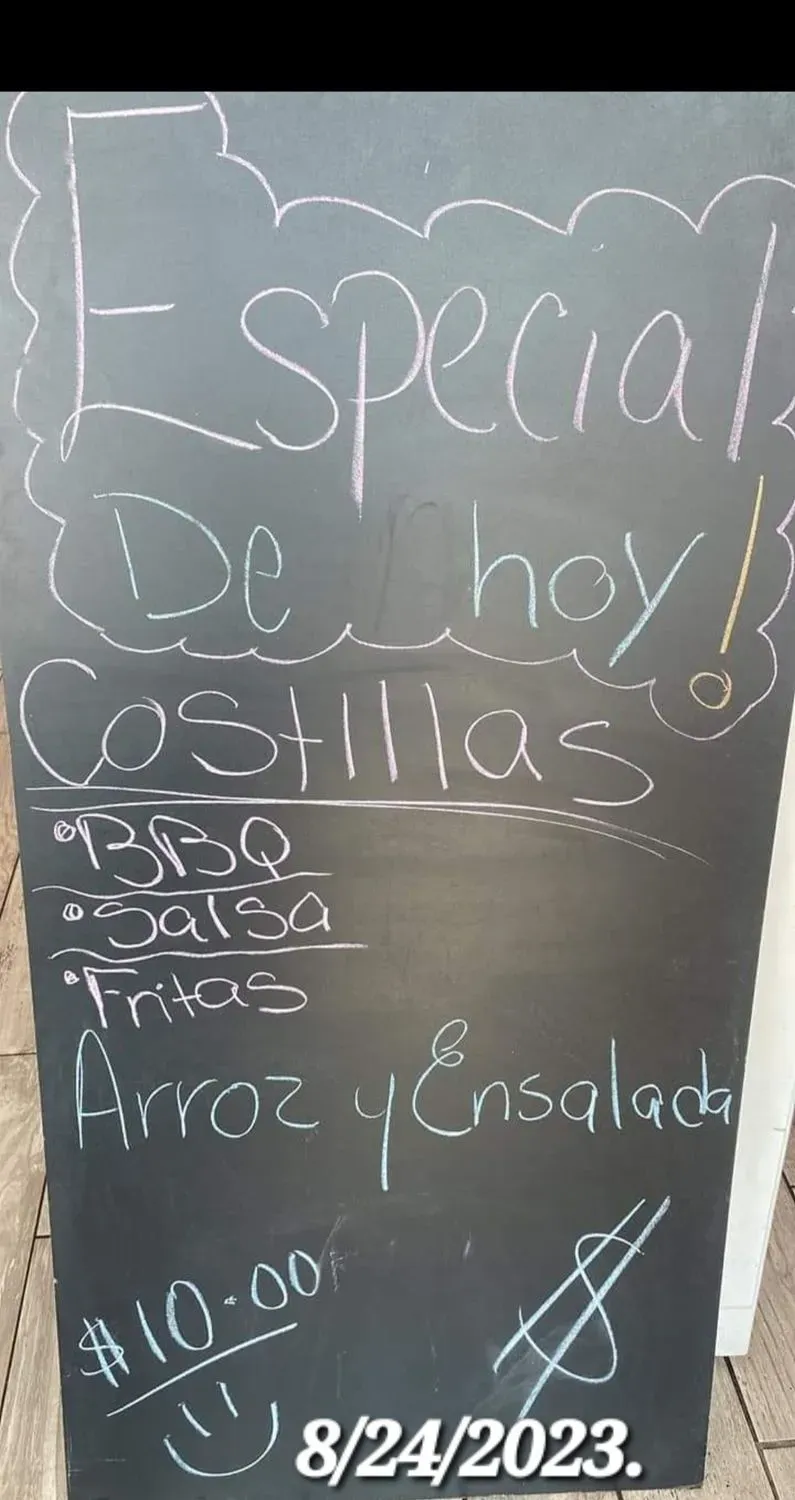 Especial
De hoy!
Costillas
• BBQ
• Salsa
• Fritas
Arroz y Ensalada
$10.00
$
8/24/2023.